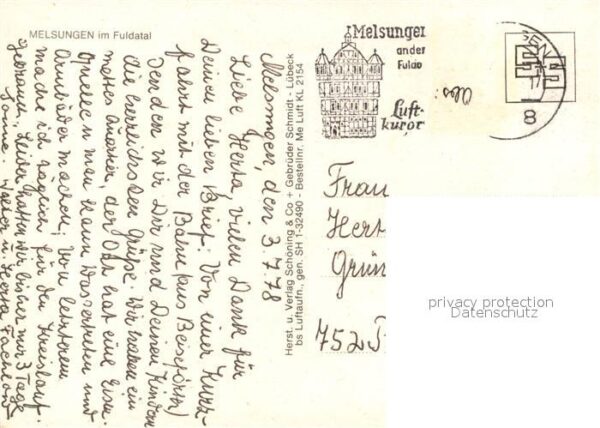 MELSUNGEN im Fuldatal
Melsungen, den 3.7.78
Liebe Herta, vielen Dank für
Deinen lieben Brief. Von einer Kurz-
fahrt mit der Bahn (aus Beisförth)
senden wir Dir und Deinen Kindern
die herzlichsten Grüße. Wir haben ein
nettes Quartier, der Ort hat eine Eisen-
quelle u. man kann Wassertreten und
Armbäder machen; von letzterem
mache ich täglich für den Kreislauf
Gebrauch. Leider hatten wir bisher nur 3 Tage
Sonne. Walter u. Herta
Herst. u. Verlag Schöning & Co + Gebrüder Schmidt - Lübeck
bs Luftaufn., gen. SH 1-32490 - Bestellnr. Me Luft KL 2154
Melsungen
an der
Fulda
Luft-
kurort
Abs:
8
Frau
Hert
Grün
752
privacy protection
Datenschutz